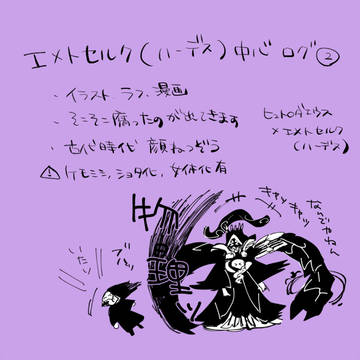 エメトセルク(ハーデス)中心 ログ②
・イラスト ラフ、漫画
・そこそこ腐ったのが出てきます
ヒュトロダエウス
×エメトセルク
(ハーデス)
・古代時代 顔ねつぞう
⚠ケモミミ、ショタ化、女体化有
キャッキャッ
なんでやねん
物理ッ
いたい